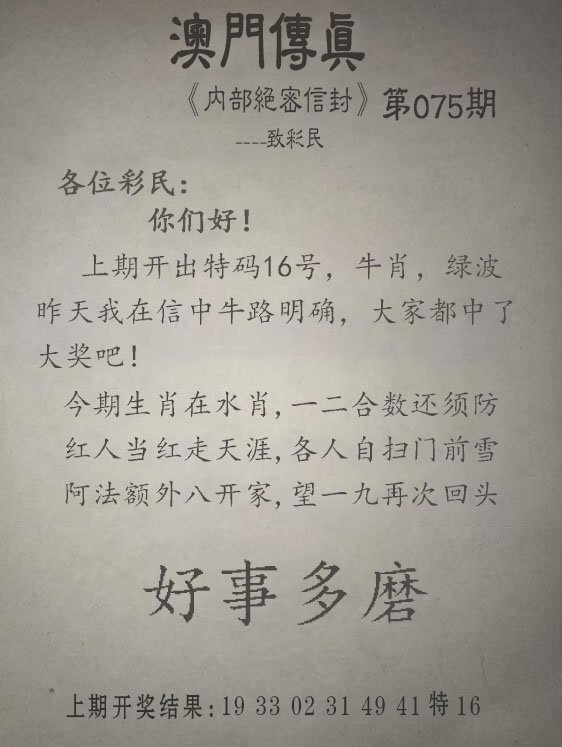 澳門傳眞
《内部絕密信封》第075期
----致彩民
各位彩民:
你们好!
上期开出特码16号，牛肖，绿波
昨天我在信中牛路明确，大家都中了
大奖吧!
今期生肖在水肖,一二合数还须防
红人当红走天涯,各人自扫门前雪
阿法额外八开家,望一九再次回头
好事多磨
上期开奖结果:19 33 02 31 49 41 特 16